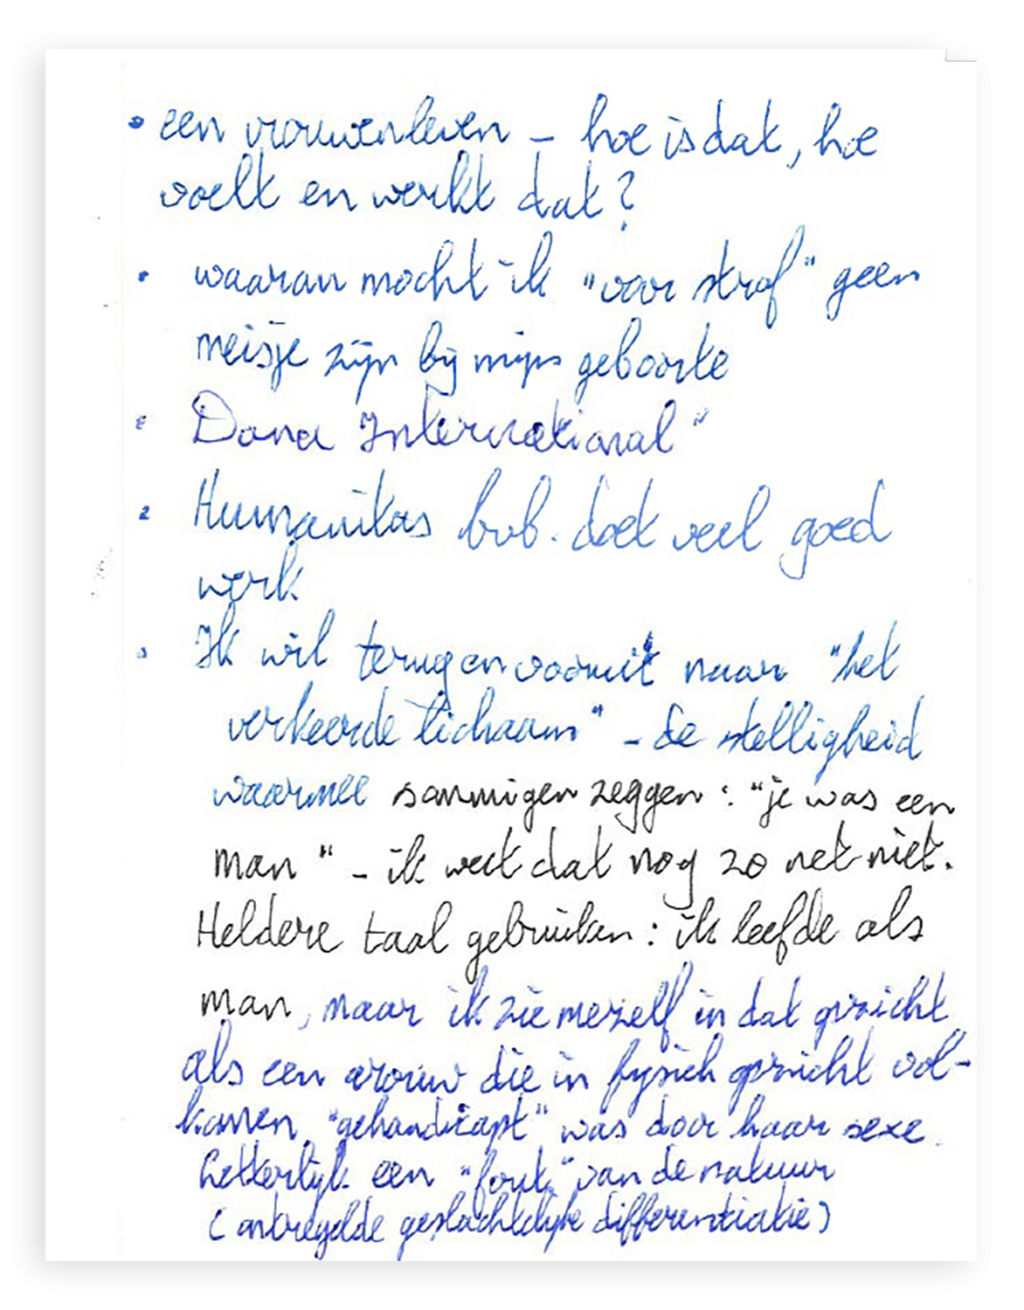 • een vrouwenleven – hoe is dat, hoe
voelt en werkt dat?
• waarom mocht ik "voor straf" geen
meisje zijn bij mijn geboorte
• Dana International"
• Humanitas bvb. doet veel goed
werk
• Ik wil terug en vooruit naar "het
verkeerde lichaam" – de stelligheid
waarmee sommigen zeggen: "je was een
man" – ik weet dat nog zo net niet.
Heldere taal gebruiken: ik leefde als
man, maar ik zie mezelf in dat opzicht
als een vrouw die in fysiek opzicht vol-
komen "gehandicapt" was door haar sexe.
Letterlijk een "fout" van de natuur
(ontregelde geslachtelijke differentiatie)